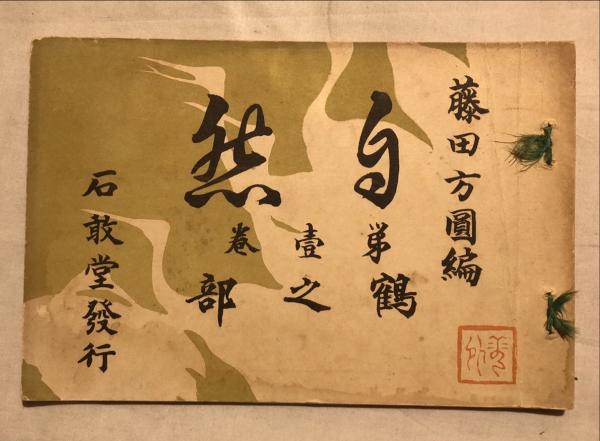 藤田方圓編
自然
第壹巻
鶴之部
石敢堂發行